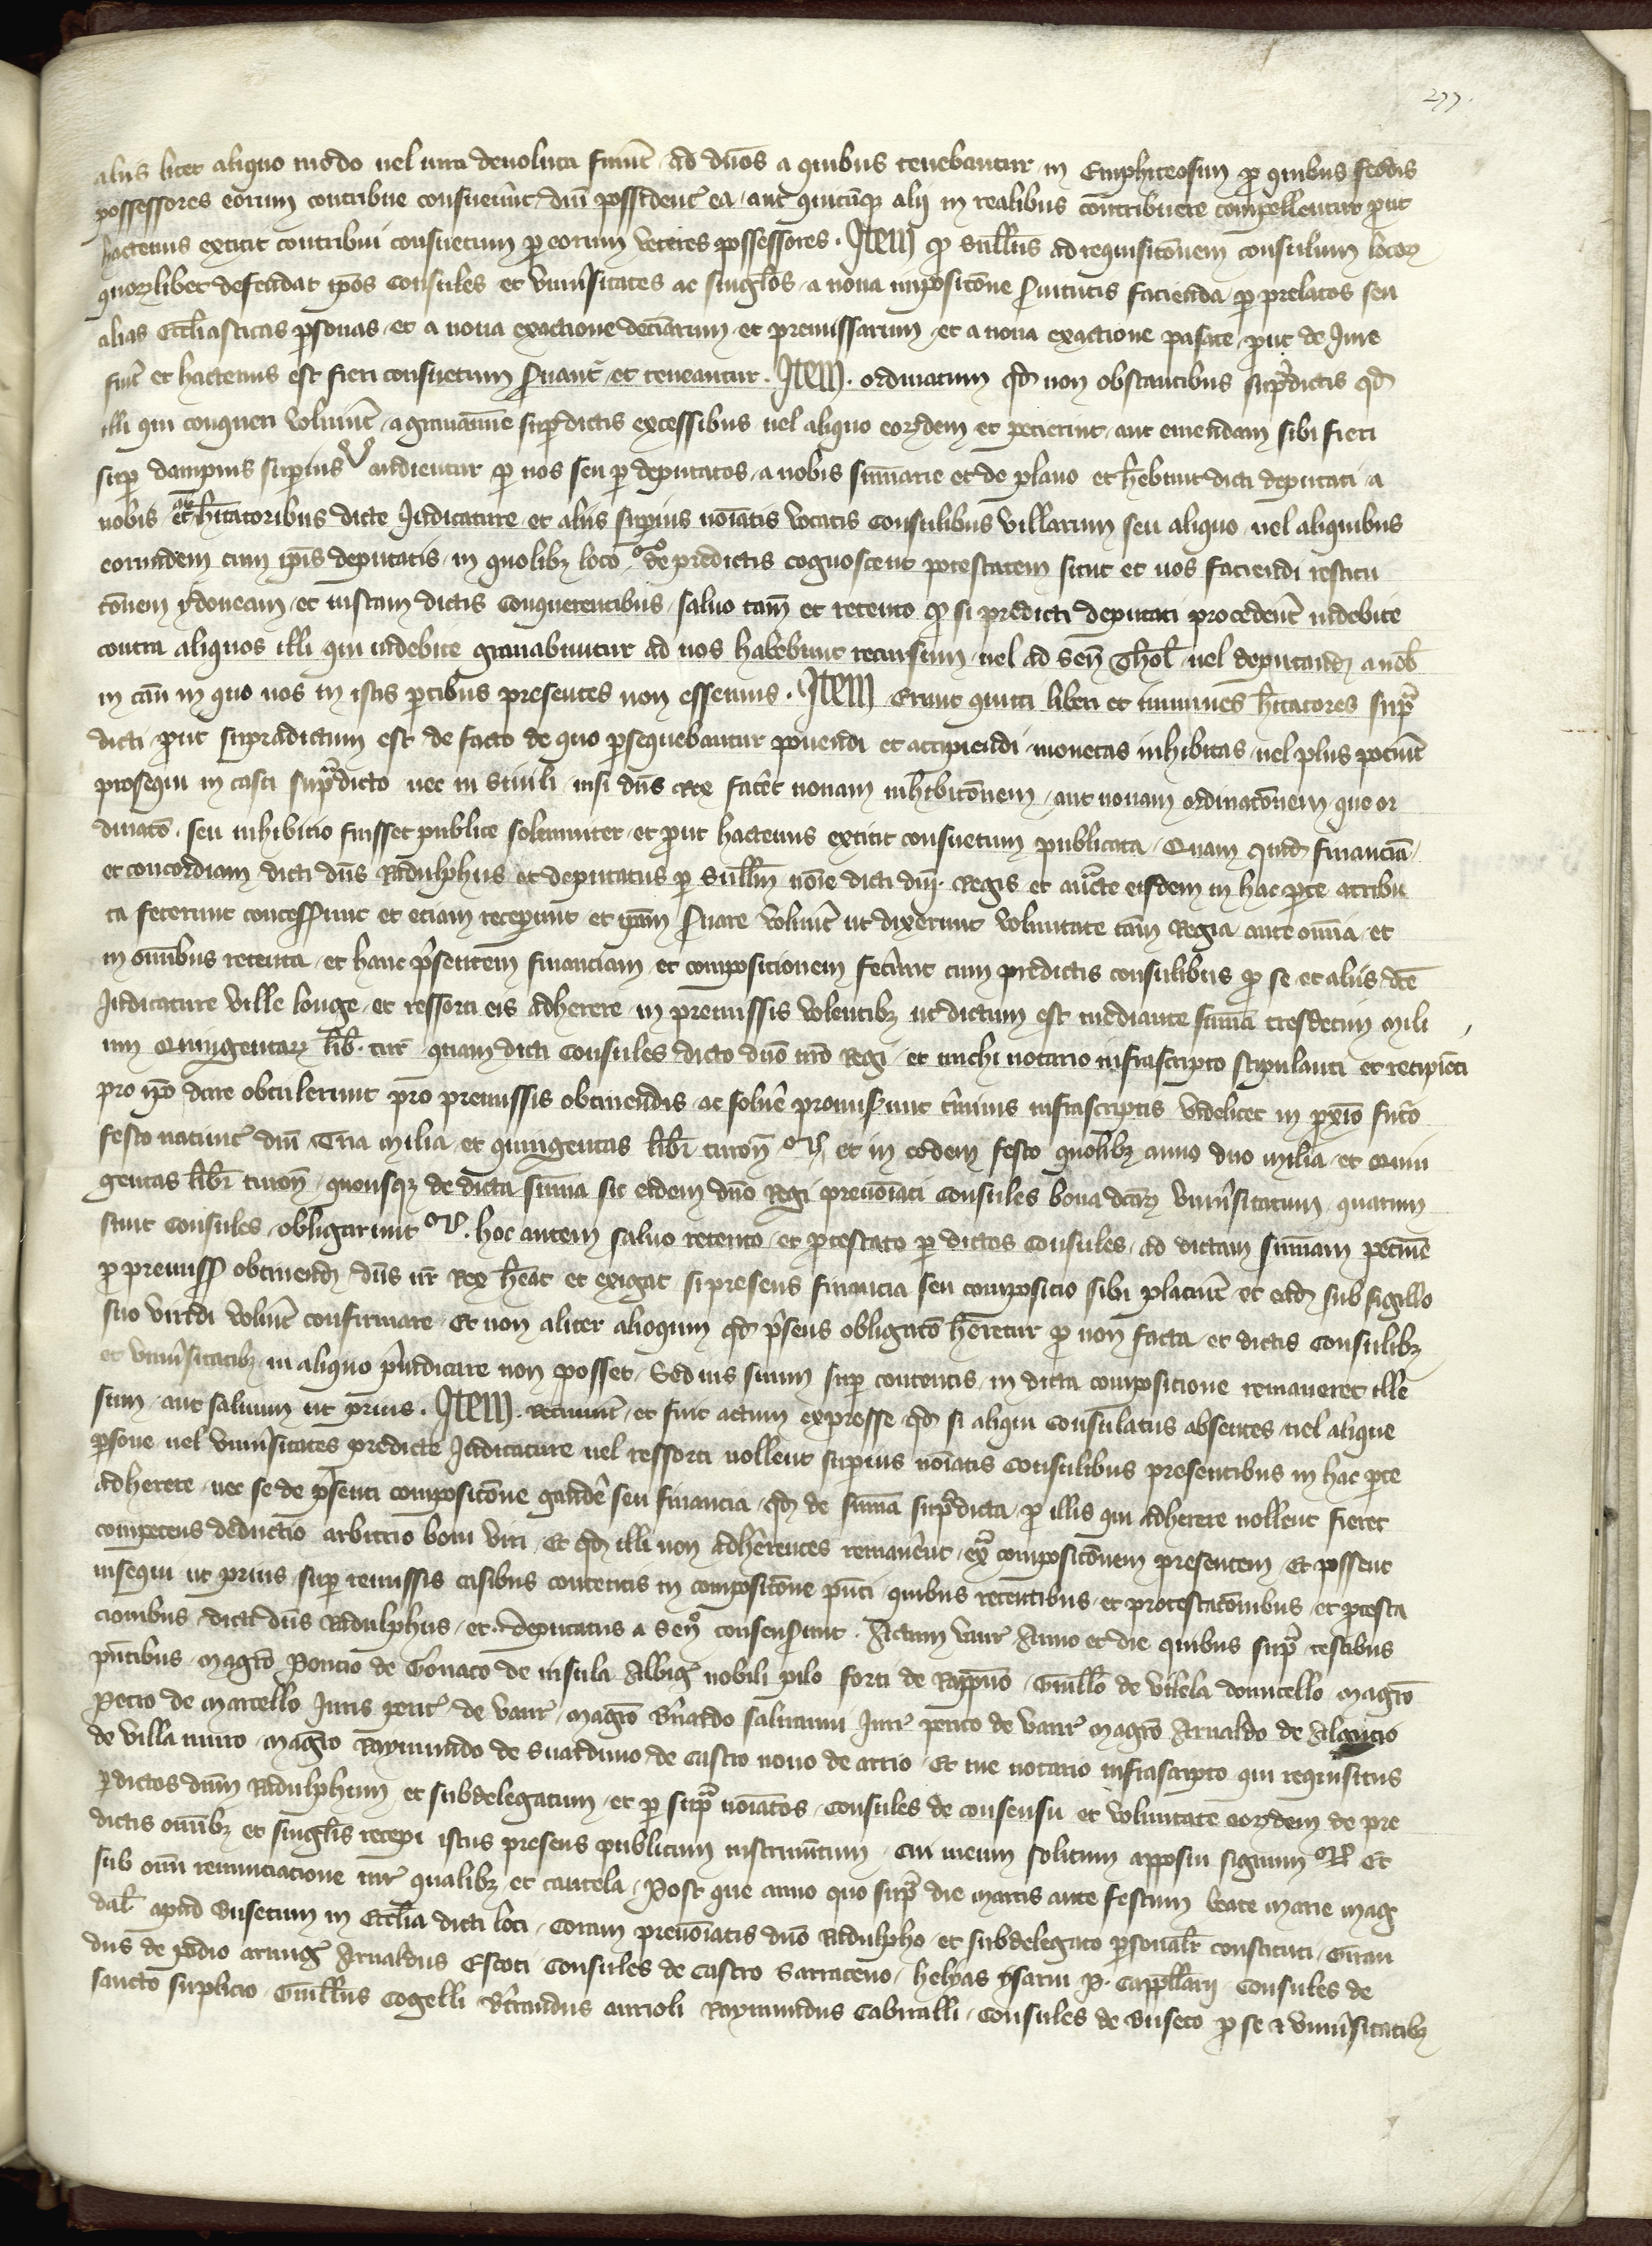 277.
aliis licet aliquo modo vel iura devoluta fuerit ad dños a quibus tenebantur in Emphiteosim pro quibus feodis
possessores eorum contribuere consueverūt dum possident ea, aut quicūq₃ alij in realibus contribuere compellentur prout
hactenus extitit contribui consuetum per eorum veteres possessores. Item qd Senllus ad requisitōnem consulum locoꝝ
quoꝝlibet defendat ip̄os consules et univ̄sitates ac singl̄os a nova impositōne servitutis facienda per prelatos seu
alias Eccl̄iasticas p̄sonas et a nova exactione decimarum et premissarum et a nova exactione passate prout de Jure
fuit et hactenus est fieri consuetum servant̄ et teneantur. Item. ordinatum qd non obstantibus sup̄dictis qd
illi qui conqueri voluerint a gravamine sup̄dictis excessibus vel aliquo eoꝝdem et petierint aut emendam sibi fieri
super dampnis superius audientur per nos seu per deputatos a nobis sum̄arie et de plano et h̄ebunt dicti deputati a
nobis et h̄itatoribus dicte Judicature et aliis superius no̅iatis vocatis consulibus villarum seu aliquo vel aliquibus
eorumdem cum ip̄is deputatis in quolib₃ loco de predictis cognoscent potestatem sicut et nos faciendi restitu
tōnem ydoneam et iustam dictis conquerentibus salvo tam̄ et retento qd si predicti deputati procederent indebite
contra aliquos illi qui indebite gravabuntur ad nos habebunt recursum vel ad Sen̄ Thol̄ vel deputand a nob̄
in casu in quo nos in istis partibus presentes non essemus. Item Erunt quitti liberi et immunes h̄itatores sup̄
dicti prout supradictum est de facto de quo p̄sequebantur ponendi et accipiendi monetas inhibitas vel plus potuerit
prosequi in casu sup̄dicto nec in simili nisi dn̄s Rex faceret novam inhibitōnem aut novam ordinatōnem que or
dinatō seu inhibitio fuisset publice solemniter et prout hactenus extitit consuetum publicata. Quam quid financiā
et concordiam dicti dn̄s Radulphus et deputatus per Senllm no̅ie dicti dn̄i Regis et auctē eisdem in hac parte attribu
ta fecerunt concesserunt et etiam receperunt et ip̄am servare voluerit ut dixerunt voluntate tam̄ Regia ante omnia et
in omnibus retenta et hanc p̄sentem financiam et compositionem fecerunt cum predictis consulibus per se et aliis dc̄e
Judicature ville longe et ressorti eis adherere in premissis volentib₃ ut dictum est mediante sum̄a tresdecim mili
um Quingentaꝝ lib̄. tur̄ quam dicti consules dicto dn̄o nr̄o Regi et michi notario infrascripto stipulanti et recipiēti
pro ip̄o dare obtulerunt pro premissis obtinendis ac solvere promiserunt terminis infrascriptis videlicet in pxīo futuro
festo nativit̄ dn̄i Tria milia et quingentas libr̄ turon̄ et in eodem festo quolib₃ anno duo milia et Quin
gentas libr̄ turon̄ quousq₃ de dicta sum̄a sit eidem dn̄o Regi preno̅iati consules bona dictaꝝ univ̄sitatum quarum
sunt consules obligarunt. hoc autem salvo retento et protestato per dictos consules, ad dictam sum̄am pecunie
pro premiss obtinend dn̄s nr̄ Rex h̄eat et exigat si presens financia seu compositio sibi placuerit et ead sub sigillo
suo viridi voluerit confirmare Et non aliter alioquin qd p̄sens obligatō h̄eretur pro non facta et dictis consulib₃
et univ̄sitatib₃ in aliquo p̄iudicare non posset Sed ius suum super contentis in dicta compositione remaneret ille
sum aut salvum ut prius. Item. Retinuerit et fuit actum expresse qd si aliqui consulatus absentes vel alique
p̄sone vel univ̄sitates predicte Judicature vel ressorti nollent superius no̅iatis consulibus presentibus in hac parte
adherere nec se de p̄senti compositōne gaudere seu financia qd de sum̄a sup̄dicta per illis qui adherere nollent fieret
competens deductio arbitrio boni viri Et qd illi non adherentes remanerent ex̄ compositōnem presentem Et possent
insequi ut prius super remissis casibus contentis in compositōne p̄nti quibus retentibus et protestatōnibus et protesta
cionibus dicti dn̄s Radulphus et deputatus a Sen̄ consenserunt. Actum Vaur̄ Anno et die quibus sup̄ testibus
p̄ntibus magr̄o Poncio de de insula Albig nobili pilo forti de Guill̄o de vilela domicello magr̄o
Petro de marcello Juris perit̄ de Vaur̄ magr̄o B̄nardo Jur̄ perito de Vaur̄ magr̄o Arnaldo de
de villa muro magr̄o Raymundo de de castro novo de arrio Et me notario infrascripto qui requisitus
p̄dictos dn̄m Radulphum et subdelegatum et per sup̄ no̅iatos consules de consensu et voluntate eoꝝdem de pre
dictis omnib₃ et singl̄is recepi istus presens publicum instrum̄tum cui meum solitum apposui signum Et
sub omī renunciacione iur̄ qualib₃ et cautela. Post que anno quo sup̄ die martis ante festum beate marie mag
dal̄ apud Busetum in Eccl̄ia dicti loci, Coram preno̅iatis dn̄o Radulpho et subdelegato p̄sonal̄r constituti, Girau
dus de podio Arnaldus Escoti consules de castro Sarraceno, helyas ysarni P. Cappellarij consules de
sancto surplicio, Guill̄us Cogelli B̄trandus aurioli Raymundus Cabiralli, consules de Buseto per se et univ̄sitatib₃